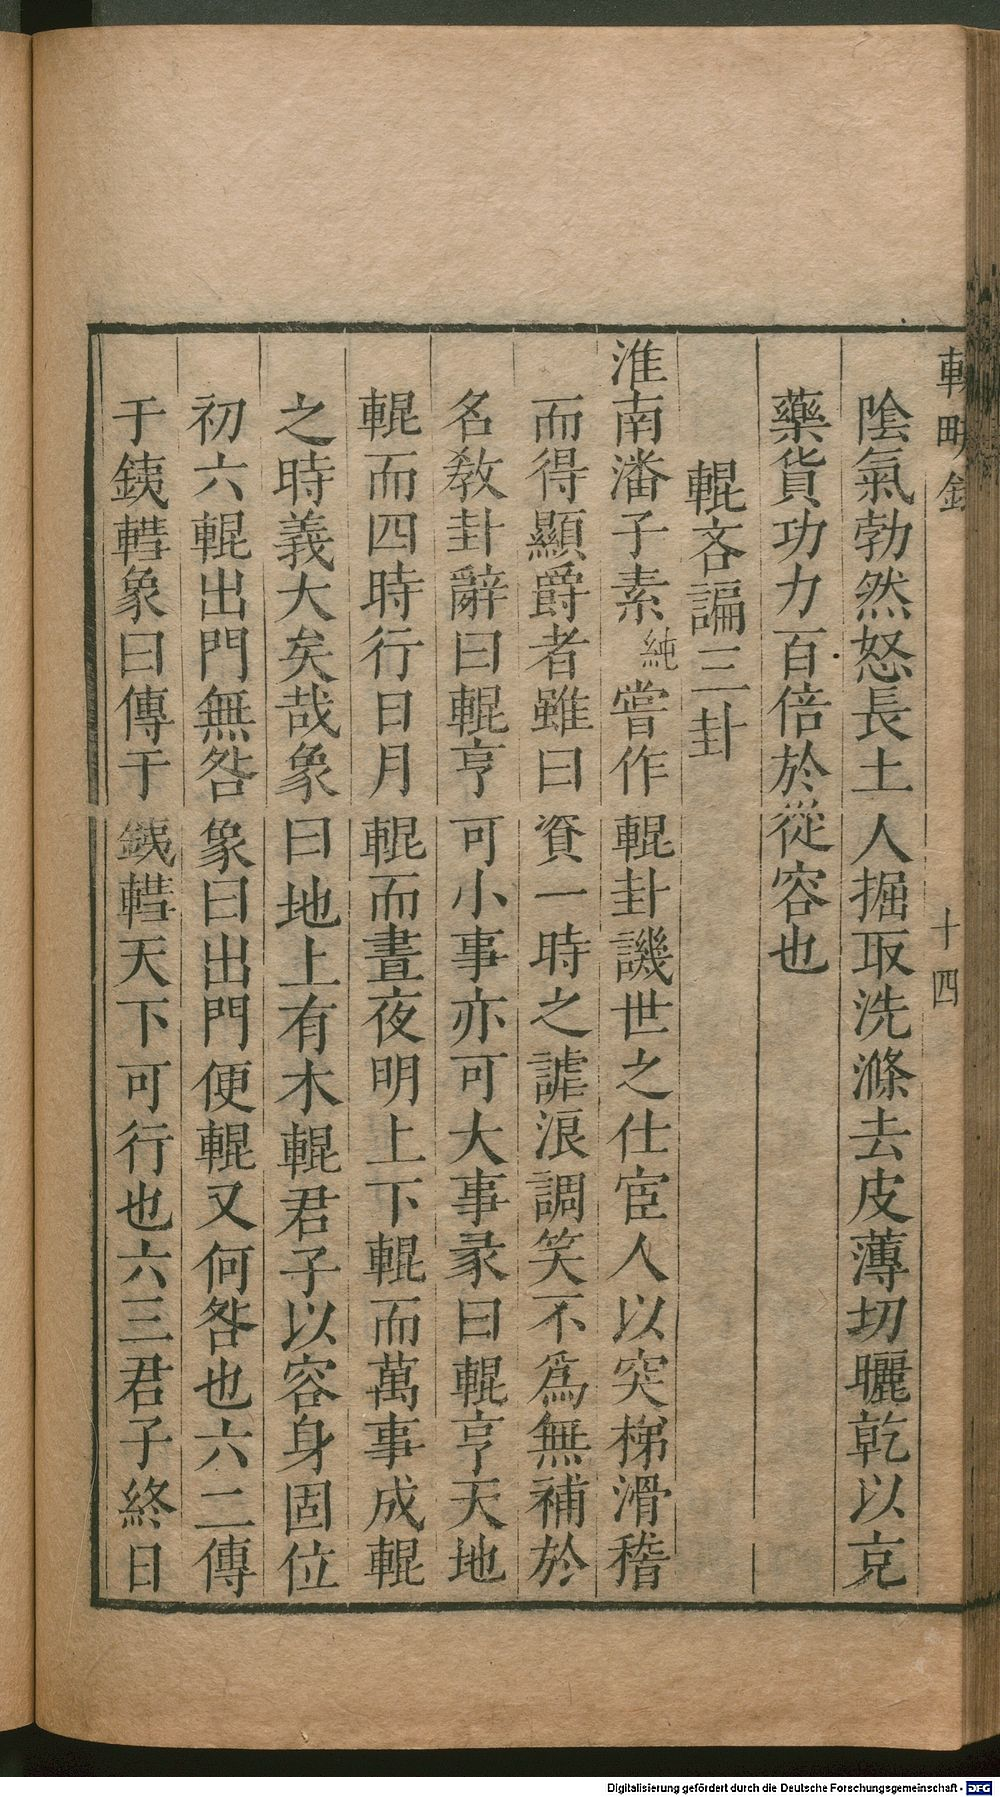 輟畊錄 十四
陰氣勃然怒長土人掘取洗滌去皮薄切曬乾以克
藥貨功力百倍於從容也
輥吝諞三卦
淮南潘子素純嘗作輥卦譏世之仕宦人以突梯滑稽
而得顯爵者雖曰資一時之謔浪調笑不爲無補於
名敎卦辭曰輥亨可小事亦可大事彖曰輥亨天地
輥而四時行日月輥而晝夜明上下輥而萬事成輥
之時義大矣哉象曰地上有木輥君子以容身固位
初六輥出門無咎象曰出門便輥又何咎也六二傳
于銕轊象曰傳于銕轊天下可行也六三君子終日
Digitalisierung gefördert durch die Deutsche Forschungsgemeinschaft - DFG